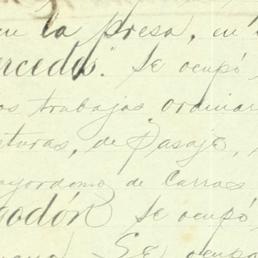 en la presa, en
ercedes". Se ocupó
os trabajos ordinar
turas, de Pasaje,
ayordomo de Carros
godón Se ocupó
Se ocupa